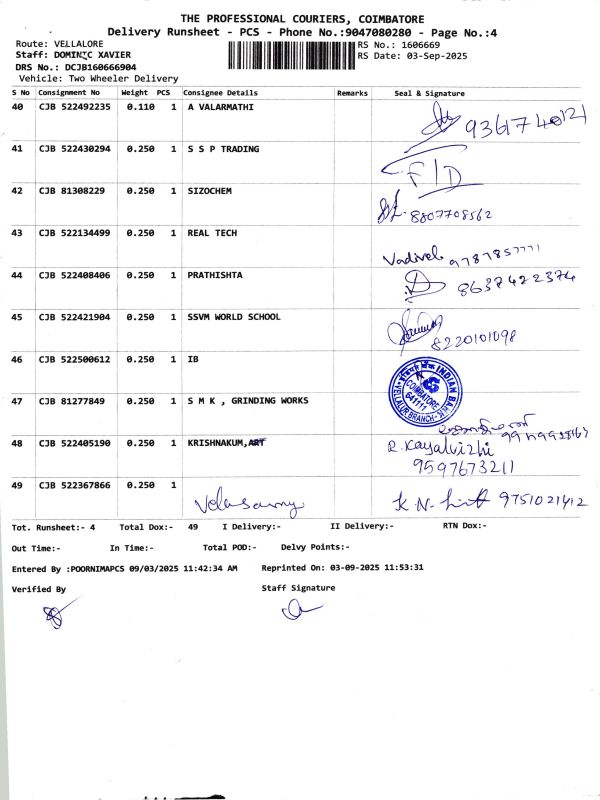 THE PROFESSIONAL COURIERS, COIMBATORE
Delivery Runsheet - PCS - Phone No.:9047080280 - Page No.:4
Route: VELLALORE
RS No.: 1606669
Staff: DOMINIC XAVIER
RS Date: 03-Sep-2025
DRS No.: DCJB160666904
Vehicle: Two Wheeler Delivery
S No Consignment No Weight PCS Consignee Details Remarks Seal & Signature
40 CJB 522492235 0.110 1 A VALARMATHI
41 CJB 522430294 0.250 1 S S P TRADING F/D
42 CJB 81308229 0.250 1 SIZOCHEM 8807708562
43 CJB 522134499 0.250 1 REAL TECH Vadivel
44 CJB 522408406 0.250 1 PRATHISHTA 8637422374
45 CJB 522421904 0.250 1 SSVM WORLD SCHOOL 8220101098
46 CJB 522500612 0.250 1 IB INDIAN BANK COIMBATORE 641111 VELLALUR BRANCH
47 CJB 81277849 0.250 1 S M K , GRINDING WORKS
48 CJB 522405190 0.250 1 KRISHNAKUM,ART R. Kayalvizhi
9597673211
49 CJB 522367866 0.250 1 Velusamy K N 9751021412
Tot. Runsheet:- 4 Total Dox:- 49 I Delivery:- II Delivery:- RTN Dox:-
Out Time:- In Time:- Total POD:- Delvy Points:-
Entered By :POORNIMAPCS 09/03/2025 11:42:34 AM Reprinted On: 03-09-2025 11:53:31
Verified By Staff Signature